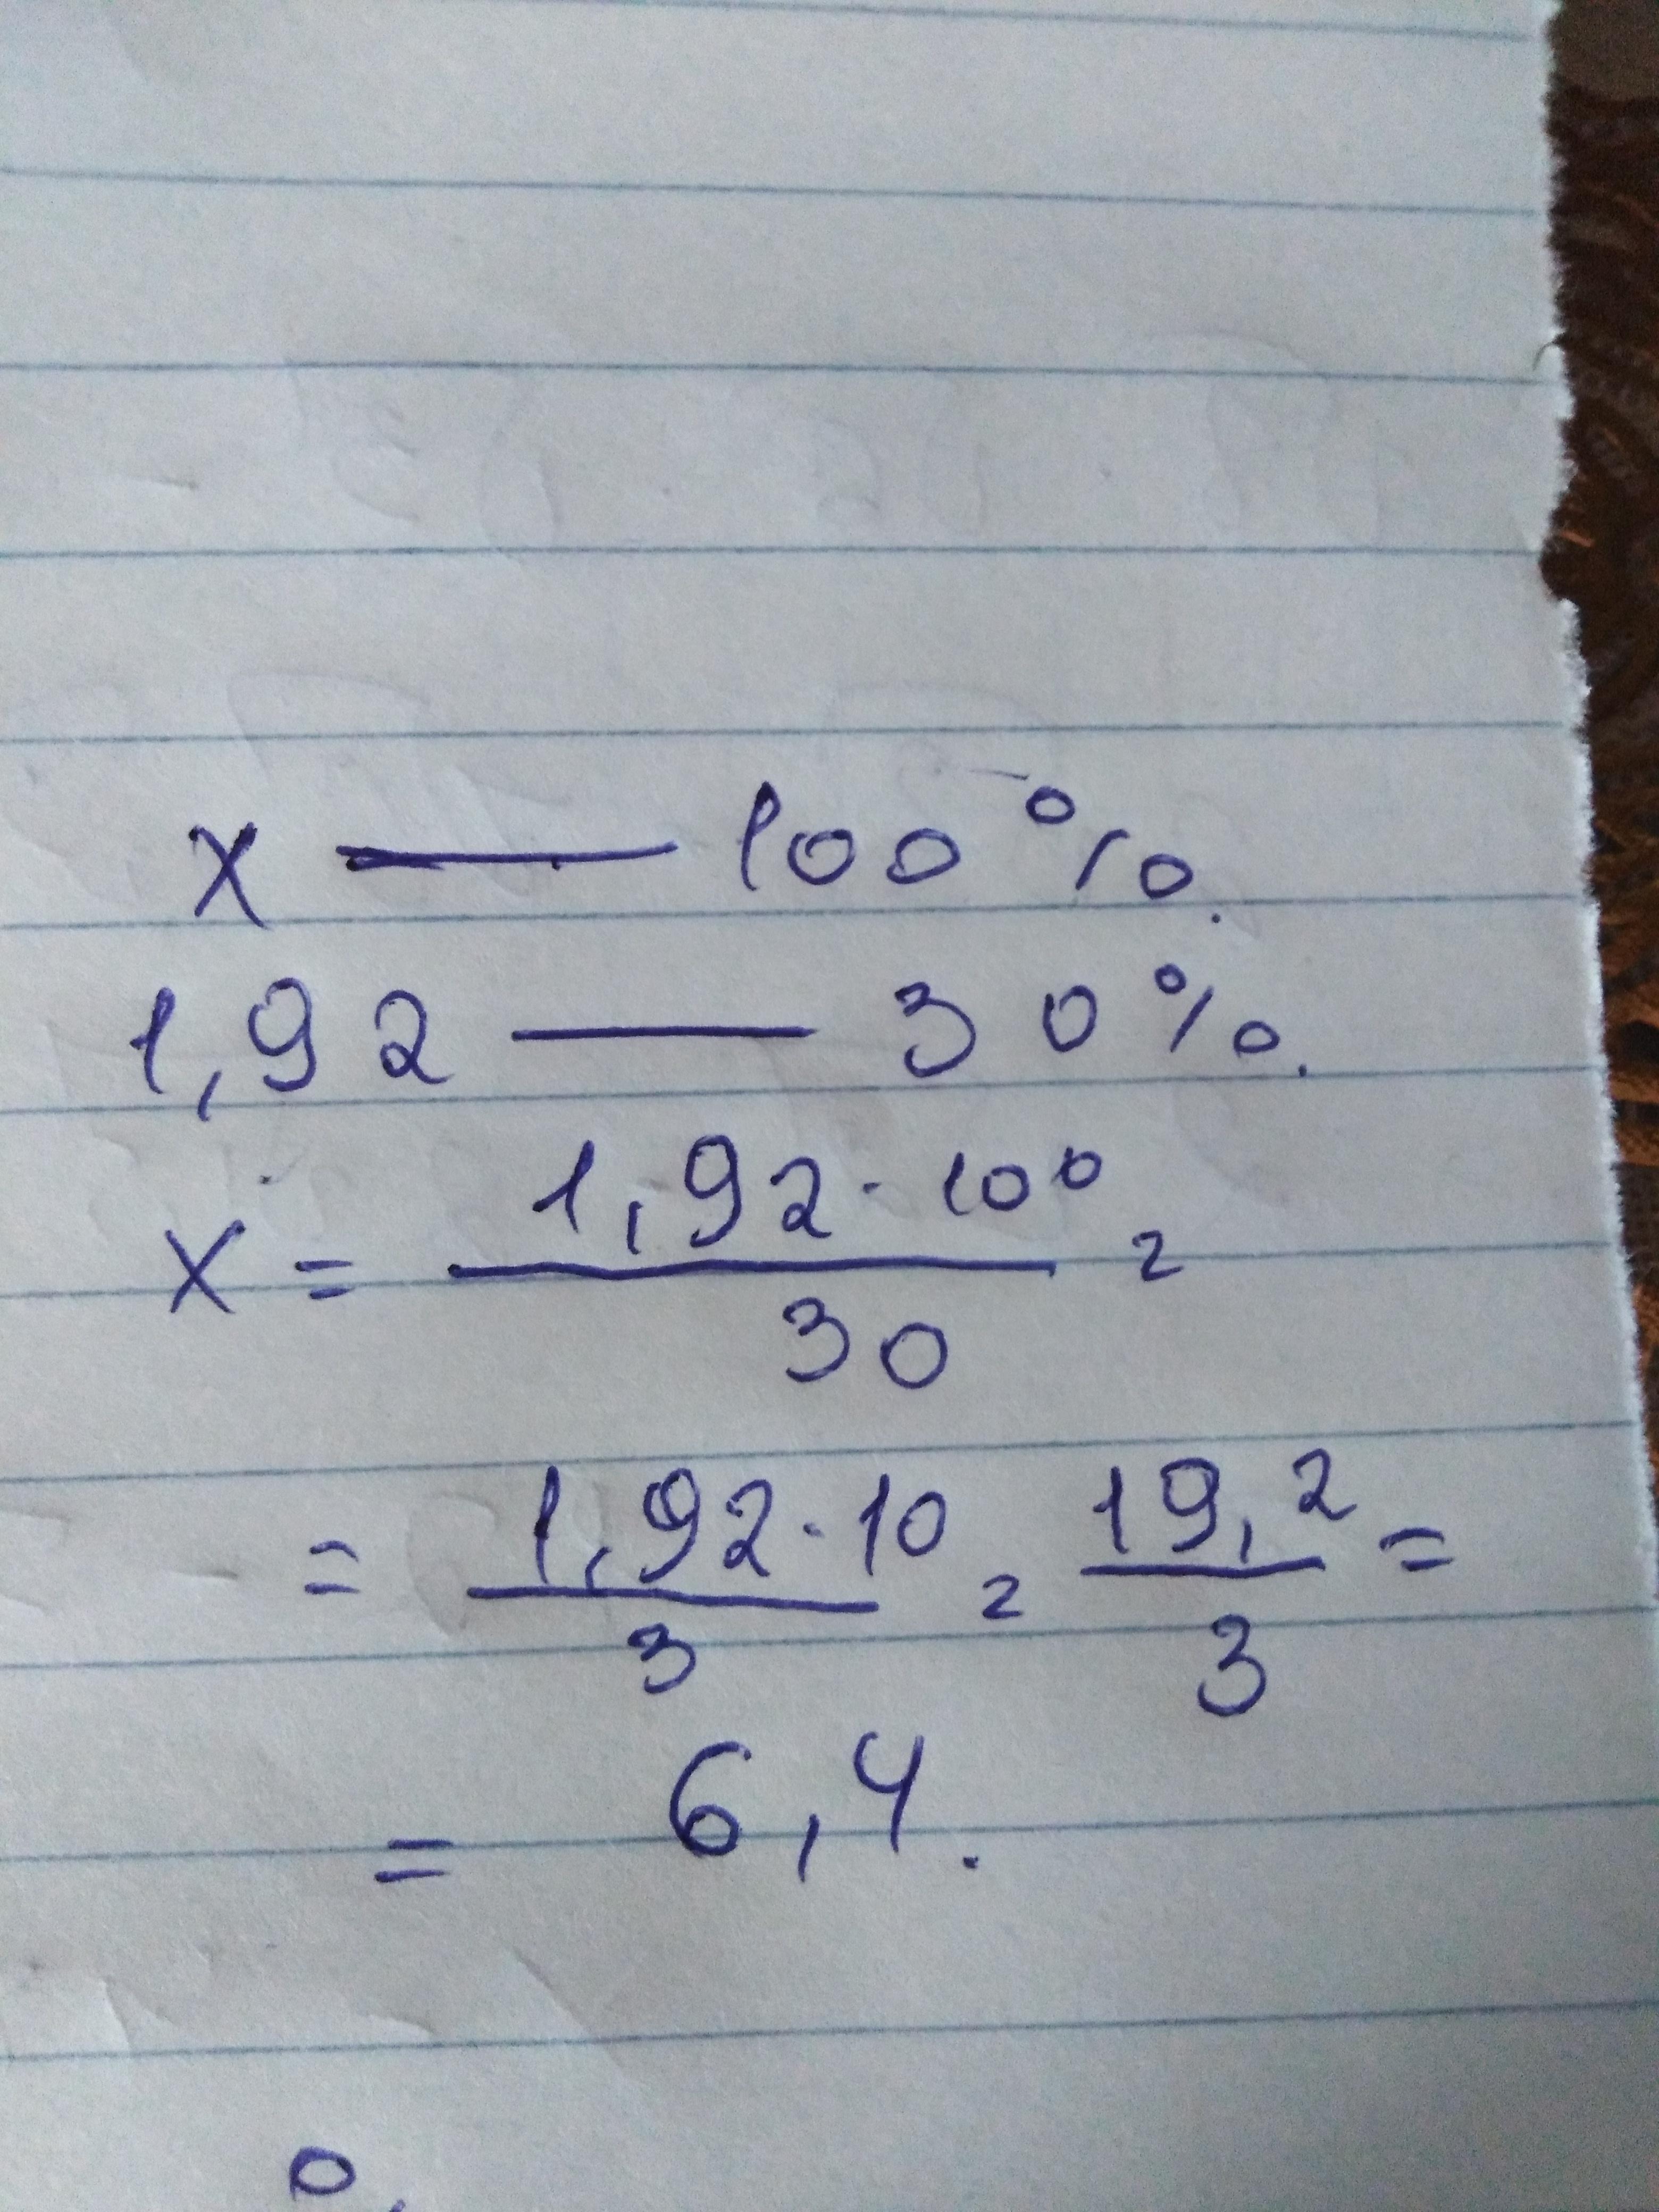 x — 100%.
1,92 — 30%.
x = 1,92 · 100 / 30 =
= 1,92 · 10 / 3 = 19,2 / 3 =
= 6,4.